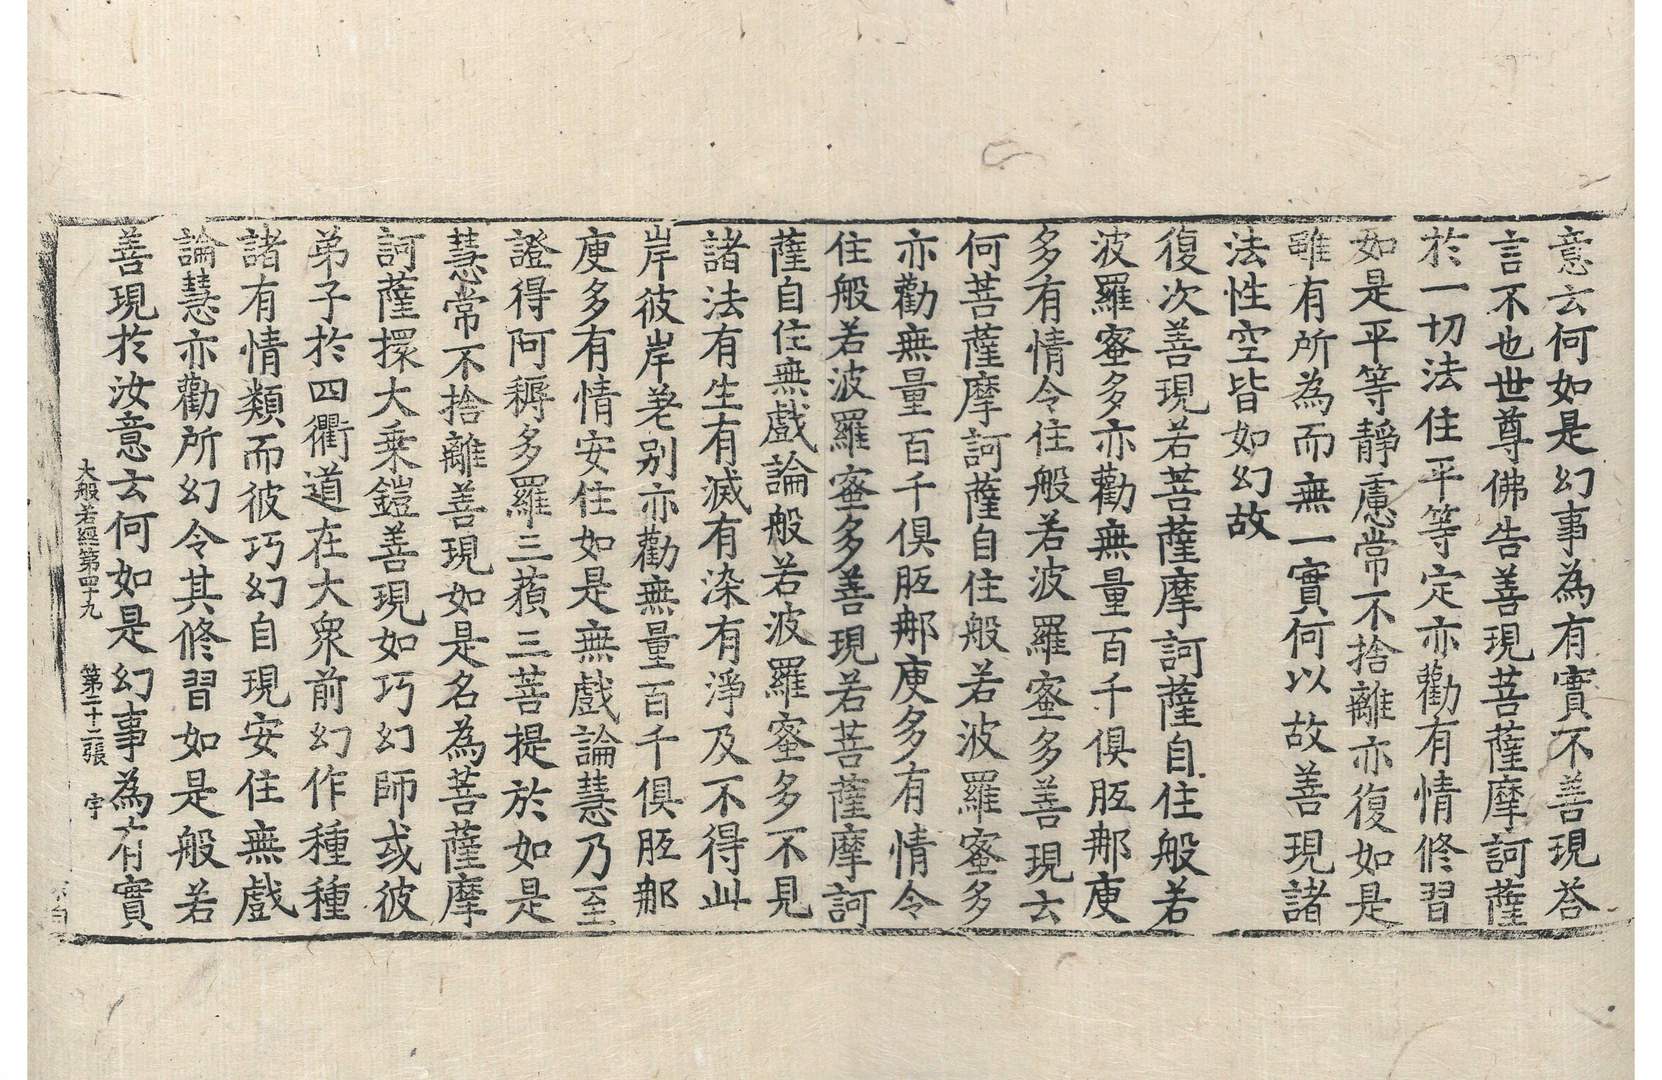 意云何如是幻事為有實不善現荅
言不也世尊佛告善現菩薩摩訶薩
於一切法住平等定亦勸有情修習
如是平等靜慮常不捨離亦復如是
雖有所為而無一實何以故善現諸
法性空皆如幻故
復次善現若菩薩摩訶薩自住般若
波羅蜜多亦勸無量百千俱胝那庾
多有情令住般若波羅蜜多善現云
何菩薩摩訶薩自住般若波羅蜜多
亦勸無量百千俱胝那庾多有情令
住般若波羅蜜多善現若菩薩摩訶
薩自住無戲論般若波羅蜜多不見
諸法有生有滅有染有淨及不得此
岸彼岸差別亦勸無量百千俱胝那
庾多有情安住如是無戲論慧乃至
證得阿耨多羅三藐三菩提於如是
慧常不捨離善現如是名為菩薩摩
訶薩擐大乘鎧善現如巧幻師或彼
弟子於四衢道在大衆前幻作種種
諸有情類而彼巧幻自現安住無戲
論慧亦勸所幻令其修習如是般若
善現於汝意云何如是幻事為有實
大般若經第四十九 第二十二張 宇